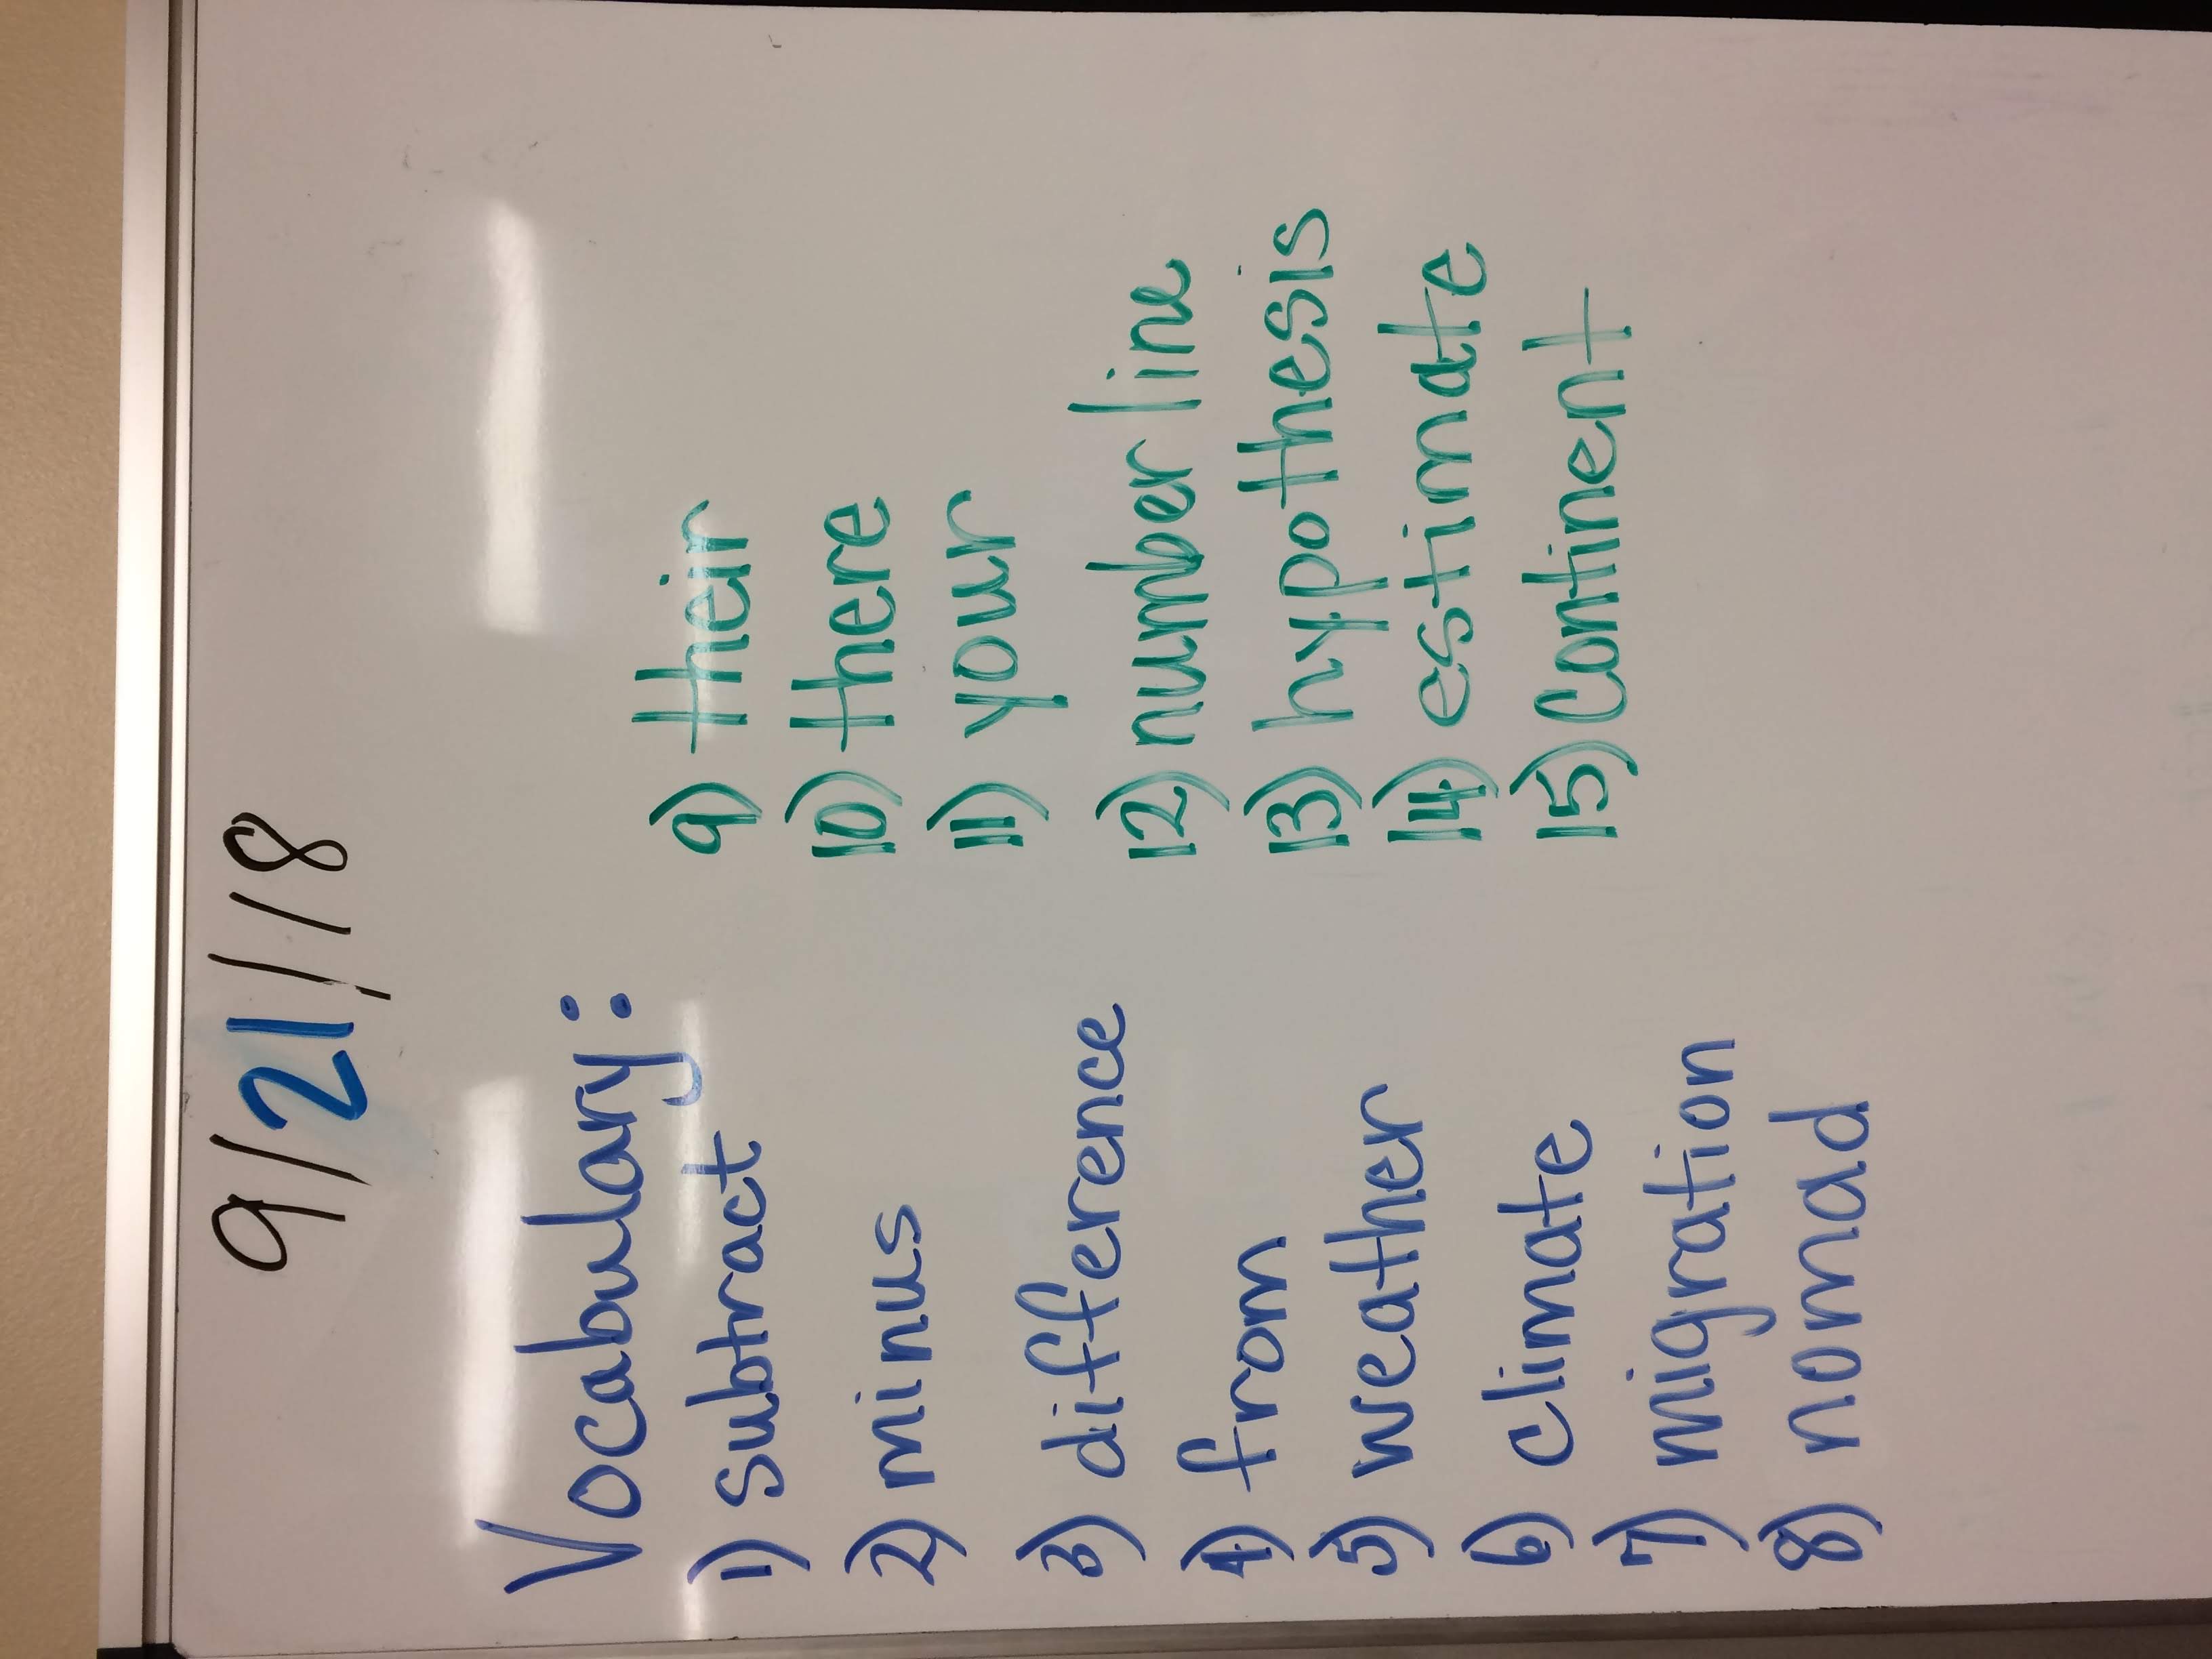 9/21/18
Vocabulary:
1) subtract
2) minus
3) difference
4) from
5) weather
6) climate
7) migration
8) nomad
9) their
10) there
11) your
12) number line
13) hypothesis
14) estimate
15) Continent